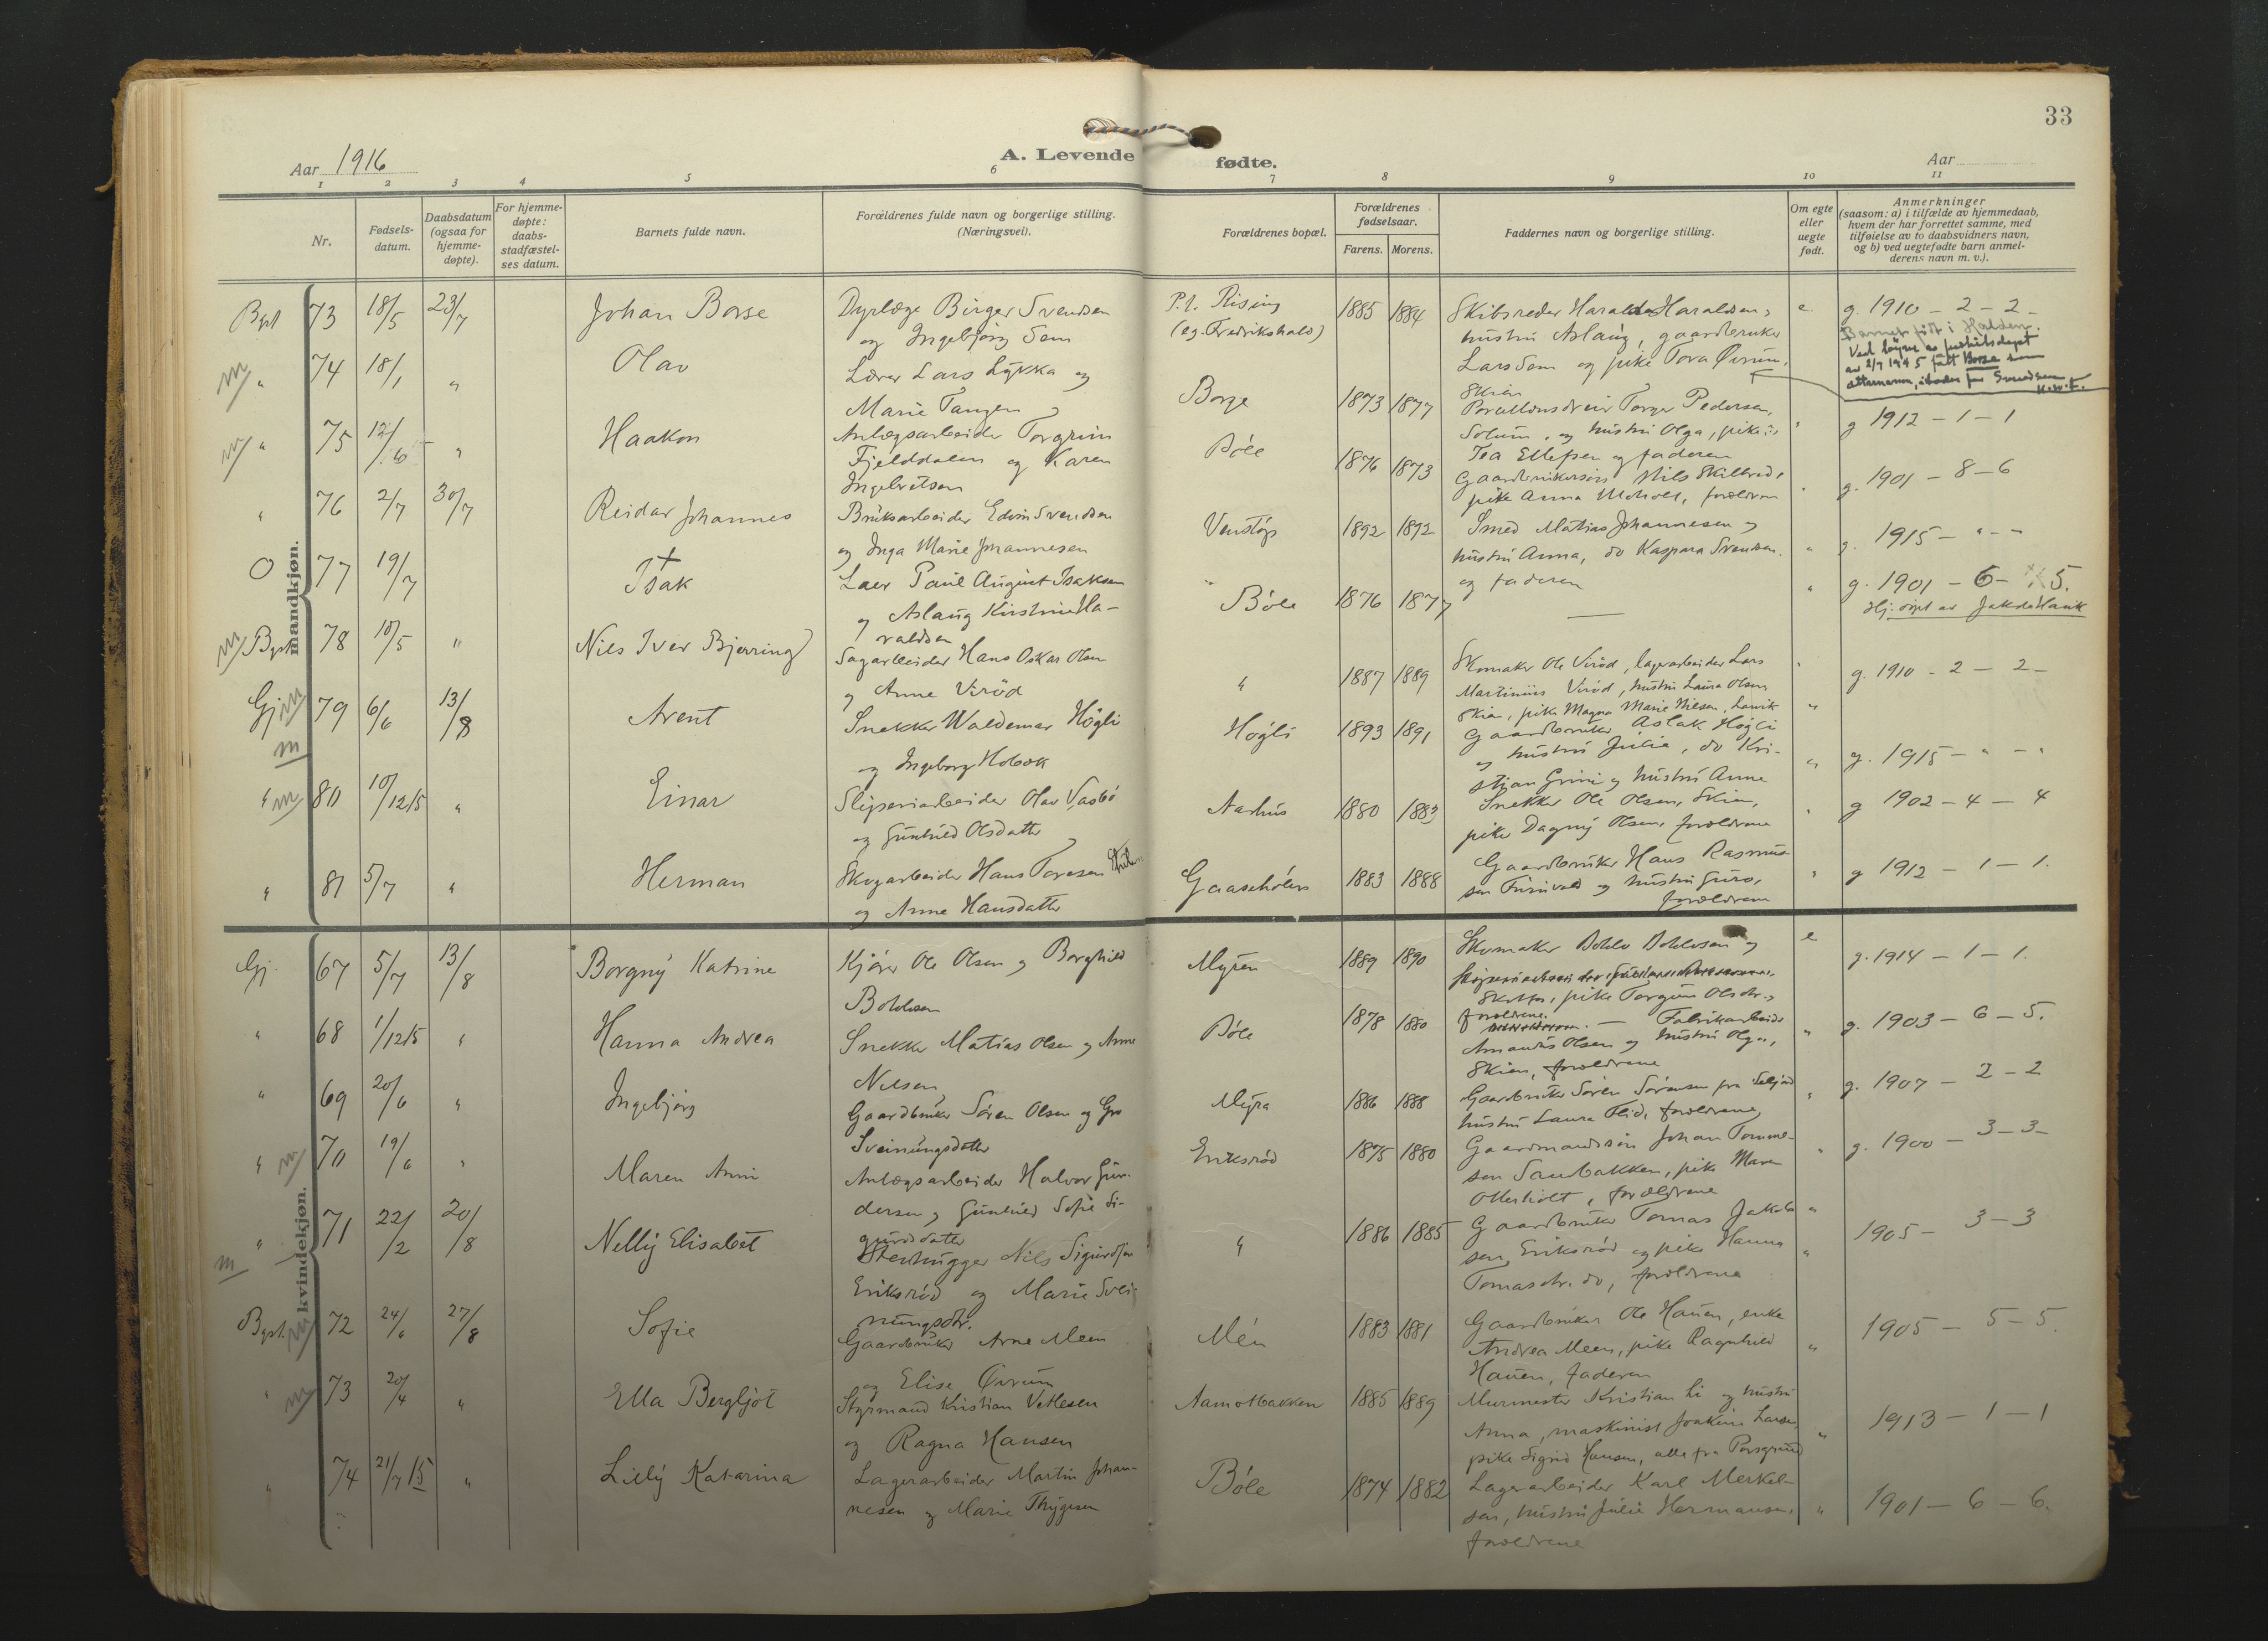 33
Aar 1916
A. Levende fødte.
Aar
1 2 3 4 5 6 7 8 9 10 11
Nr.
Fødsels-
datum.
Daabsdatum
(ogsaa for
hjemme-
døpte).
For hjemme-
døpte:
daabs-
stadfæstel-
ses datum.
Barnets fulde navn.
Forældrenes fulde navn og borgerlige stilling.
(Næringsvei).
Forældrenes bopæl.
Forældrenes
fødselsaar.
Farens. Morens.
Faddernes navn og borgerlige stilling.
Om egte
eller
uegte
født.
Anmerkninger
(saasom: a) i tilfælde av hjemmedaab,
hvem der har forrettet samme, med
tilføielse av to daabsvidners navn,
og b) ved uegtefødte barn anmel-
derens navn m. v.).
mandkjøn.
73 18/5 23/7 Johan Borse
Dyrlæge Birger Svendsen
og Ingebjørg Sem
P.t. Rising
(eg. Fredrikshald)
1885 1884
Skibsreder Harald Haraldsen,
hustru Aslaug, gaardbruker
Lars Sem og pike Tora Øvrum,
Skien
e.
g. 1910 - 2 - 2 -
Barnet født i Halden.
74 18/1 " Olav
Lærer Lars Lykka og
Marie Tangen
Borge
1873 1877
Torger Pedersen,
Solum, og hustru Olga, pike
Tea Ellefsen og faderen
g 1912 - 1 - 1
75 12/6 " Haakon
Anlægsarbeider Torgrim
Fjelddalen og Karen
Ingebretsen
Bøle
1876 1873
Gaardbrukersøn Nils Skilbred,
pike Anna Moholt, forældrene
g. 1901 - 8 - 6
76 2/7 30/7 Reidar Johannes
Bruksarbeider Edvin Svendsen
og Inga Marie Johannesen
Venstøp
1892 1892
Smed Matias Johannesen og
hustru Anna, do Kaspara Svendsen
og faderen
g. 1915 - " - "
O 77 19/7 Isak
Paul August Isaksen
og Aslaug Kirstine Ha-
raldsen
Bøle
1876 1877
g. 1901 - 6 - 5.
Hj. døpt av
78 10/5 " Nils Iver Bjerring
Sagarbeider Hans Oskar Olsen
og Anne Virød
"
1887 1889
Skomaker Ole Virød, lagerarbeider Lars
Martinius Virød, hustru Laura Olsen
Skien, pike Magna Marie Nilsen, Larvik
g. 1910 - 2 - 2 -
Gj 79 6/6 13/8 Arent
Snekker Waldemar Høgli
og Ingeborg Holbæk
Høgli
1893 1891
Gaardbruker Aslak Høgli
og hustru Julie, do Kri-
stian Grini og hustru Anne
g. 1915 - " - "
80 10/12 15 " Einar
Sliperiarbeider Olav Vasbø
og Gunhild Olsdatter
Aarhus
1880 1883
Snekker Ole Olsen, Skien,
pike Dagny Olsen, forældrene
g 1902 - 4 - 4
81 5/7 " Herman
Skogarbeider Hans Toresen
og Anne Hansdatter
Gaaseholm
1883 1888
Gaardbruker Hans Rasmus-
sen Furuvald og hustru Guro,
forældrene
g 1912 - 1 - 1.
kvindekjøn.
Gj. 67 5/7 13/8 Borgny Katrine
Kjører Ole Olsen og Borghild
Bohlsen
Myren
1889 1890
Skomaker
Skotfos, pike Torgun Olsdtr.,
forældrene.
e
g. 1914 - 1 - 1.
" 68 1/12 15 " Hanna Andrea
Snekker Matias Olsen og Anne
Nilsen
Bøle
1878 1880
Fabrikarbeider
Amandus Olsen og hustru Olga,
Skien, forældrene
g. 1903 - 6 - 5.
" 69 20/6 " Ingebjørg
Gaardbruker Søren Olsen og Gro
Sveinungsdatter
Myra
1886 1888
Gaardbruker Søren Sørensen fra Seljord
hustru Laura Flid, forældrene
g. 1907 - 2 - 2
" 70 19/6 " Maren Anni
Anlægsarbeider Halvor Gun-
dersen og Gunhild Sofie Si-
gurdsdatter
Eriksrød
1875 1880
Gaardmandssøn Johan Tomme-
sen Sandbakken, pike Maren
Otterholt, forældrene
g. 1900 - 3 - 3 -
" 71 22/2 20/8 Nelly Elisabet
Stenhugger Nils Sigurdsen
Eriksrød og Marie Svei-
nungsdtr.
"
1886 1885
Gaardbruker Tomas Jakob-
sen Eriksrød og pike Hanna
Tomasdtr. do, forældrene
1905 - 3 - 3
72 24/6 27/8 Sofie
Gaardbruker Arne Meen
og Elise Øvrum
Mén
1883 1881
Gaardbruker Ole Hauen, enke
Andrea Meen, pike Ragnhild
Hauen, faderen
1905 - 5 - 5.
73 20/4 " Ella Bergljot
Styrmand Kristian Vetlesen
og Ragna Hansen
Aamotbakken
1885 1889
Murmester Kristian Li og hustru
Anna, maskinist Joakim Larsen,
pike Sigrid Hansen, alle fra Porsgrund
1913 - 1 - 1
74 21/7 15 " Lilly Katarina
Lagerarbeider Martin Johan-
nesen og Marie Thygesen
Bøle
1874 1882
Lagerarbeider Karl Merkel-
sen, hustru Julie Hermansen,
forældrene
1901 - 6 - 6.